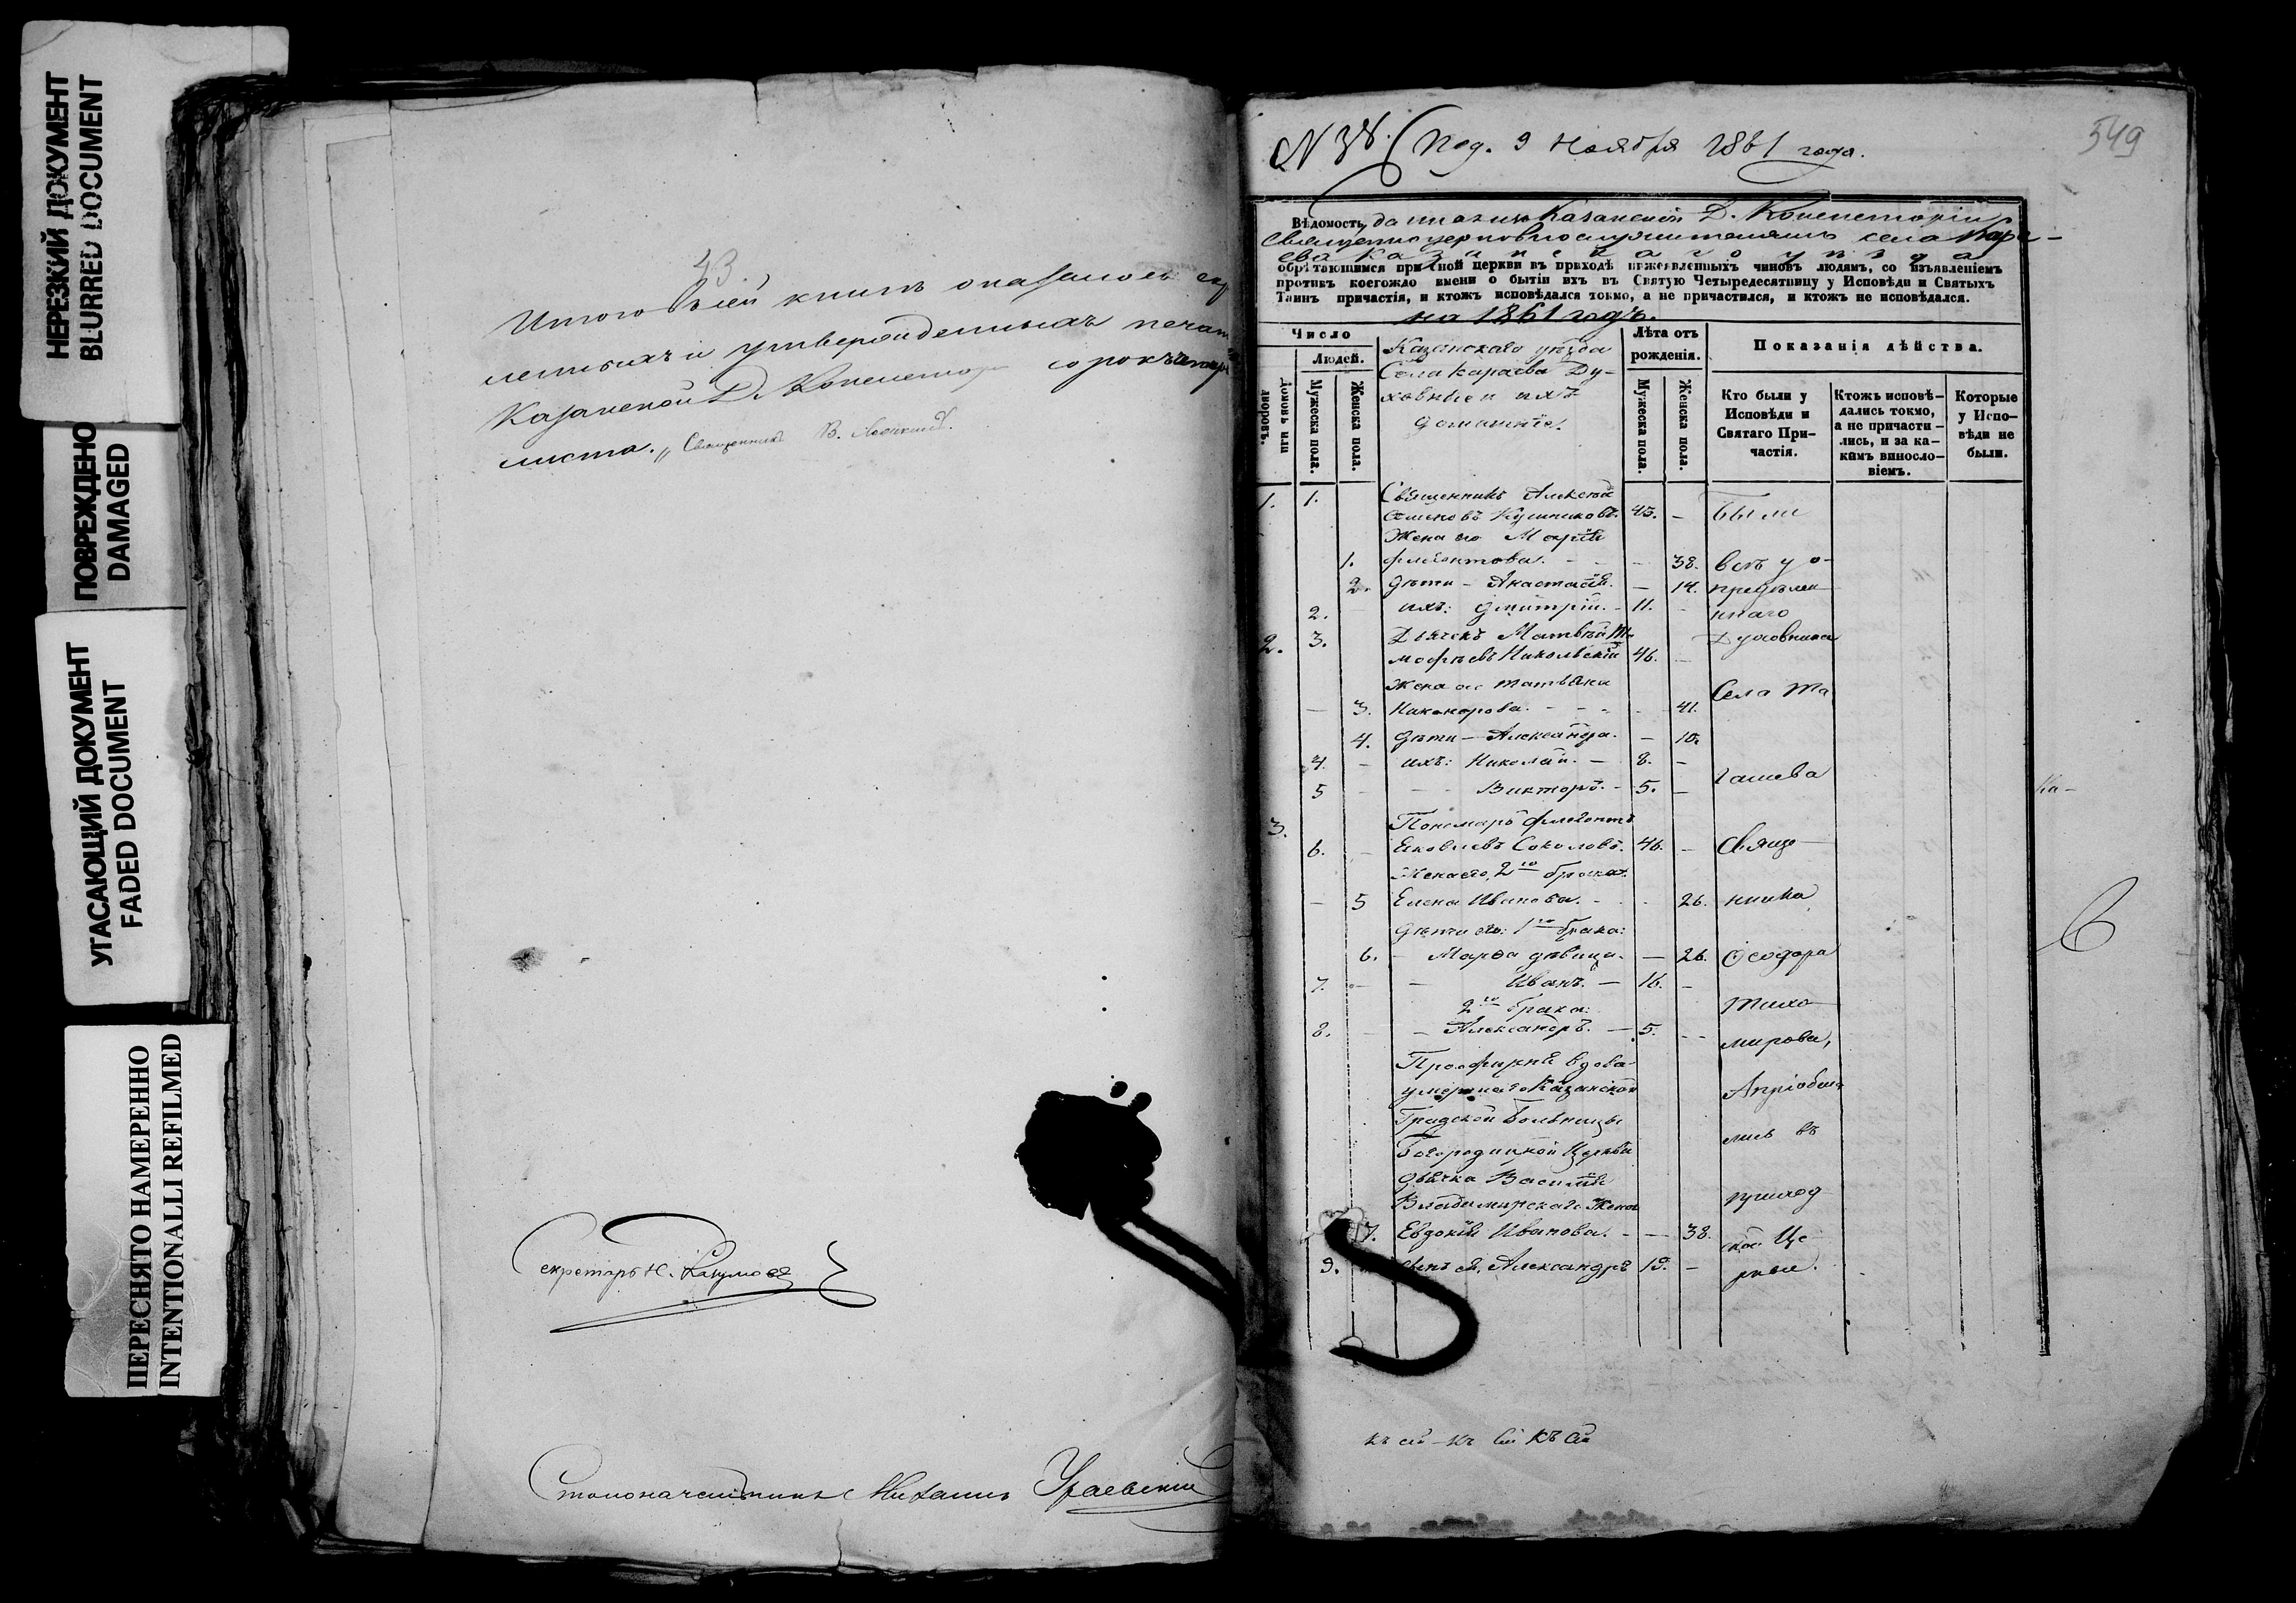 НЕРЕЗКИЙ ДОКУМЕНТ
BLURRED DOCUMENT
ПОВРЕЖДЕНО
DAMAGED
УГАСАЮЩИЙ ДОКУМЕНТ
FADED DOCUMENT
ПЕРЕСНЯТО НАМЕРЕННО
INTENTIONALLI REFILMED
43.
Итого в сей книгѣ оказалось
и утвержденныхъ печат
Казанской Д. Консистор сорокъ три
листа. „ Священникъ В.
Секретарь Н. Разумовъ
Столоначальникъ Михаилъ
N 38. Под. 9 Ноября 1861 года.
549
Вѣдомость, данная изъ Казанской Д. Консисторіи
Священноцерковнослужителямъ села Кара-
ева Казанскаго уѣзда
обрѣтающимся при оной церкви въ приходѣ нижеявленныхъ чиновъ людямъ, со изъявленіемъ
противъ коегождо имени о бытіи ихъ въ Святую Четыредесятницу у Исповѣди и Святыхъ
Таинъ причастія, и ктожъ исповѣдался токмо, а не причастился, и ктожъ не исповѣдался.
на 1861 годъ.
Число
Людей.
Домовъ или дворовъ.
Мужеска пола.
Женска пола.
Казанскаго уѣзда
Села Караева Ду-
ховные и ихъ
домашніе.
Лѣта отъ рожденія.
Мужеска пола.
Женска пола.
Показанія дѣйства.
Кто были у
Исповѣди и
Святаго При-
частія.
Ктожъ исповѣ-
дались токмо,
а не причасти-
лись, и за ка-
кимъ винословіемъ.
Которые
у Испо-
вѣди не
были.
1. 1. Священникъ Алексѣй
Семеновъ Кушниковъ. 43. – Были
Жена его Марія
1. Флегонтова. – 38. всѣ у о-
2. Дѣти – Анастасія. – 14. предѣлен-
2. ихъ: Димитрій. – 11. – наго
2. 3. Дьячекъ Матвѣй Ти- Духовника
мофѣевъ Никольскій 46. –
Жена его Татьяна Села Та
3. Никанорова. – 41.
4. Дѣти – Александра. – 10.
4. – ихъ: Николай. – 8. –
5 – Викторъ. – 5. – гашева
3. Пономарь Флегонтъ
6. – Яковлевъ Соколовъ. 46. – Свяще-
Жена его, 2го брака:
– 5 Елена Иванова. – 26. нника
Дѣти его: 1го брака:
6. – Марѳа дѣвица. – 26. Ѳеодора
7. – Иванъ. – 16. –
2го брака: Тихо-
8. – Александръ. – 5. – мирова,
вдова
умершаго Казанской
Градской Больницы
Богородицкой Церкви
дьячка Василія
Владимирскаго Жена
7. Евдокія Иванова. – 38.
9. Сынъ ея, Александръ 19. –
Апріобщались въ
приход
ской Це
ркви.
Ка-
къ сей - къ сей къ сей